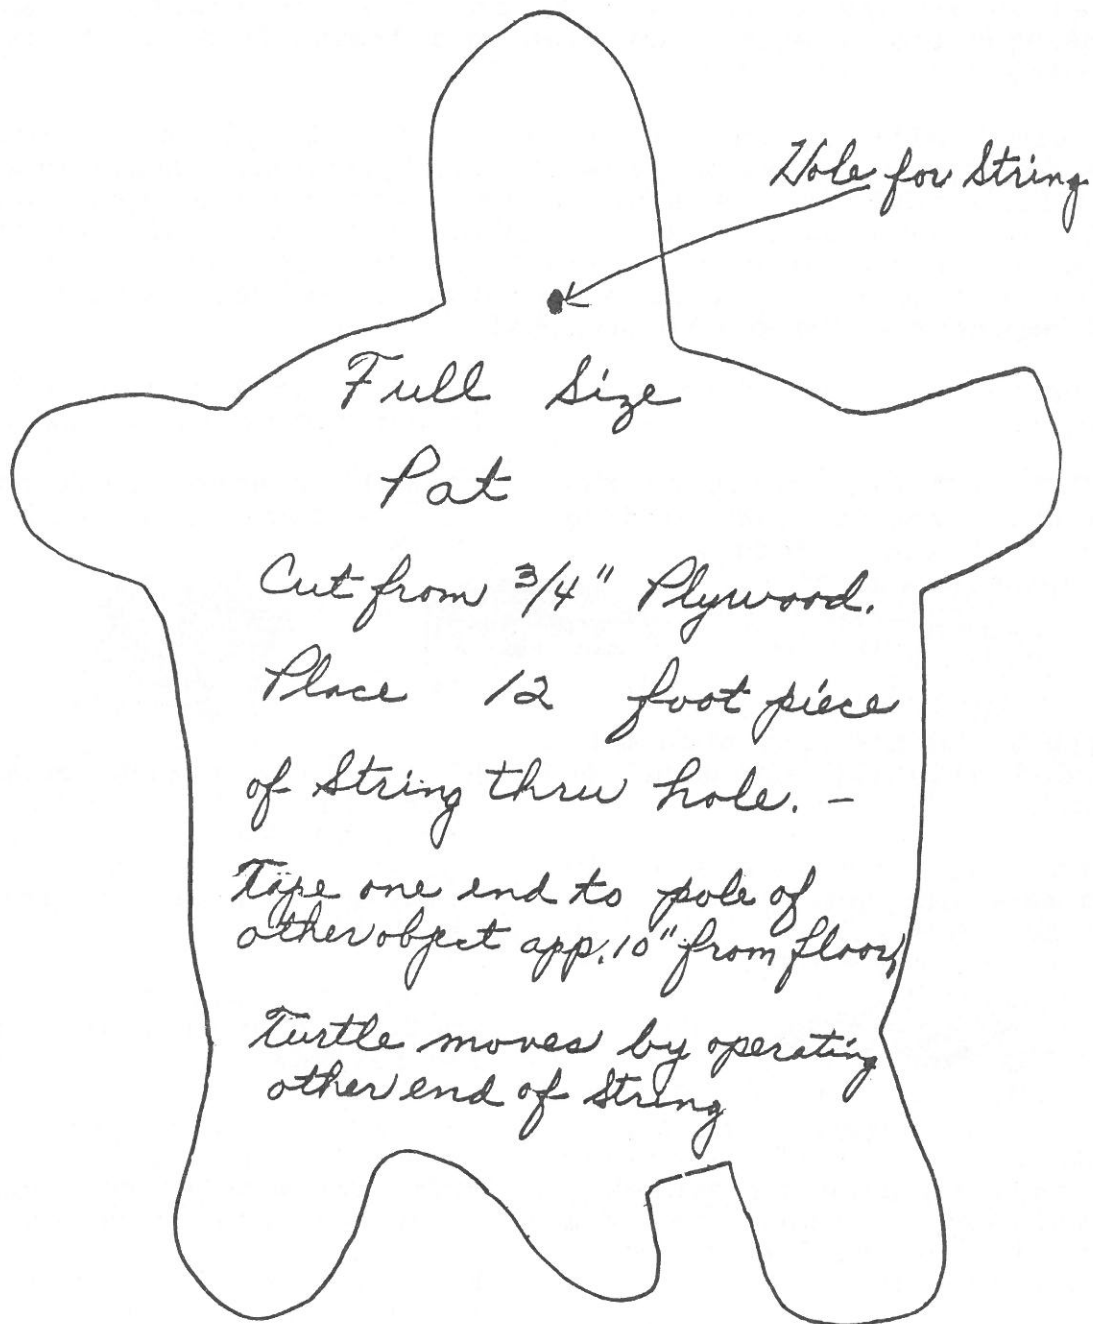 Hole for String
Full Size
Pat
Cut from 3/4" Plywood.
Place 12 foot piece
of String thru hole. -
Tape one end to pole of
other object app. 10" from floor,
Turtle moves by operating
other end of String